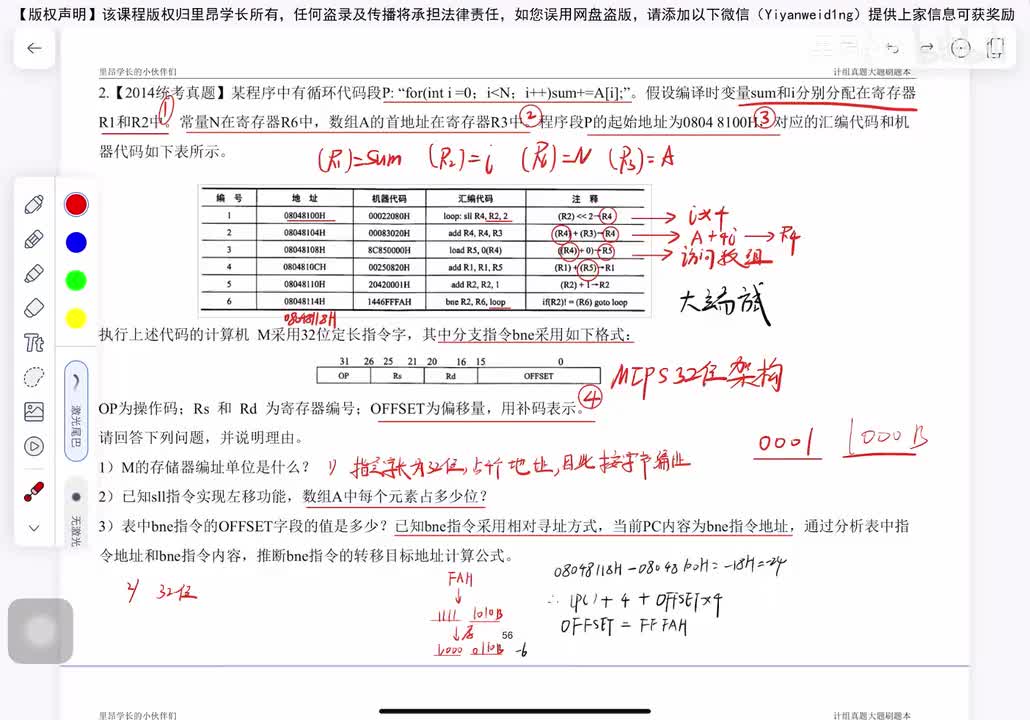 【版权声明】该课程版权归里昂学长所有，任何盗录及传播将承担法律责任，如您误用网盘盗版，请添加以下微信（Yiyanweid1ng）提供上家信息可获奖励
里昂学长的小伙伴们 计组真题大题刷题本
2.【2014统考真题】某程序中有循环代码段P: “for(int i =0；i<N；i++)sum+=A[i];”。假设编译时变量sum和i分别分配在寄存器
R1和R2中。常量N在寄存器R6中，数组A的首地址在寄存器R3中。程序段P的起始地址为0804 8100H，对应的汇编代码和机
① ② ③
器代码如下表所示。
(R1)=sum (R2)=i (R6)=N (R3)=A
编 号 地 址 机器代码 汇编代码 注 释
1 08048100H 00022080H loop: sll R4, R2, 2 (R2) << 2→R4
i×4
2 08048104H 00083020H add R4, R4, R3 (R4) + (R3)→R4
A+4i → R4
3 08048108H 8C850000H load R5, 0(R4) ((R4) + 0)→R5
访问数组
4 0804810CH 00250820H add R1, R1, R5 (R1) + (R5)→R1
5 08048110H 20420001H add R2, R2, 1 (R2) + 1→R2
6 08048114H 1446FFFAH bne R2, R6, loop if(R2)! = (R6) goto loop
大端
08048118H
执行上述代码的计算机 M采用32位定长指令字，其中分支指令bne采用如下格式：
31 26 25 21 20 16 15 0
OP Rs Rd OFFSET
MIPS 32位架构
④
OP为操作码；Rs 和 Rd 为寄存器编号；OFFSET为偏移量，用补码表示。
请回答下列问题，并说明理由。
0001 1000B
1）M的存储器编址单位是什么？
2）已知sll指令实现左移功能，数组A中每个元素占多少位？
3）表中bne指令的OFFSET字段的值是多少？已知bne指令采用相对寻址方式，当前PC内容为bne指令地址，通过分析表中指
令地址和bne指令内容，推断bne指令的转移目标地址计算公式。
08048118H - 08048100H = -18H = -24
2) 32位
FAH
∴ (PC) + 4 + OFFSET×4
1111 1010B
OFFSET = FFFAH
1000 0110B -6
56
里昂学长的小伙伴们 计组真题大题刷题本
Tt
激光尾巴
无激光